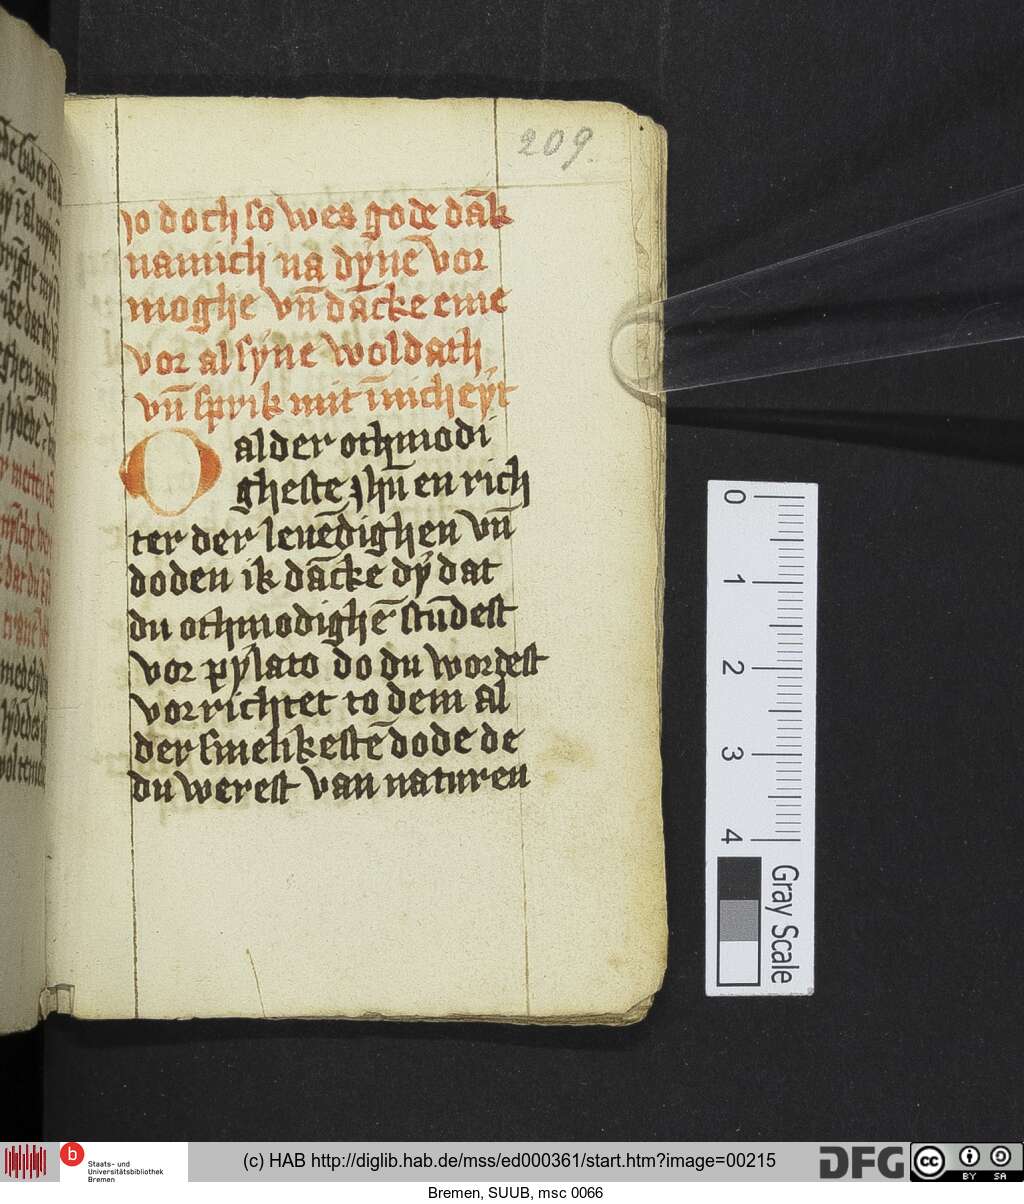 209
jo doch so wes gode dāk
namich na dẏnē vor
moghe vn̄ dācke eme
vor al sẏne woldath
vn̄ sprik mit īnicheẏt
O alder othmodi
gheste jhū en rich
ter der leuēdighen vn̄
doden ik dācke dẏ dat
du othmodighē stūdest
vor pẏlato do du wordest
vorrichtet to dem al
der smelikestē dode de
du werest van naturen
0
1
2
3
4
Gray Scale
b
Staats- und
Universitätsbibliothek
Bremen
(c) HAB http://diglib.hab.de/mss/ed000361/start.htm?image=00215
DFG
cc
BY SA
Bremen, SUUB, msc 0066